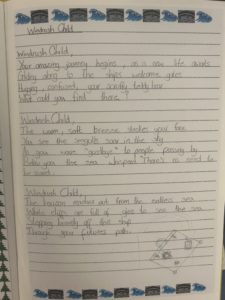 Windrush Child
Windrush Child,
Your amazing journey begins, as a new life awaits
Gliding along to the ships welcome gates
Hugging, confused, your scruffy teddy bear
What could you find there?
Windrush Child,
The warm, soft breeze strokes your face
You see the seagulls soar in the sky
As you wave "goodbye" to people passing by
Below you the sea whispers "There's no need to
be scared
Windrush Child,
The horizon reaches out from the endless sea
White cliffs are full of glee to see the sea
Stepping bravely off the ship
Through your futures path.